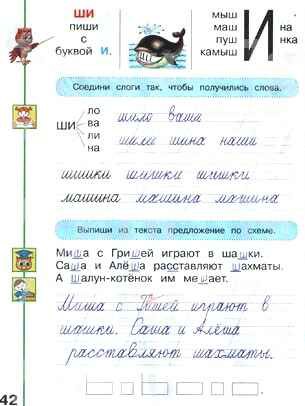 ШИ
пиши
с
буквой И.
мыш
маш
пуш
камыш
И
на
нка
Соедини слоги так, чтобы получились слова.
ШИ
ло
ва
ли
на
шило ваши
шили шина наши
шишки шишки шишки
машина машина машина
Выпиши из текста предложение по схеме.
Миша с Гришей играют в шашки.
Саша и Алёша расставляют шахматы.
А Шалун-котёнок им мешает.
Миша с Гшей играют в
шашки. Саша и Алёша
расставляют шахматы.
42